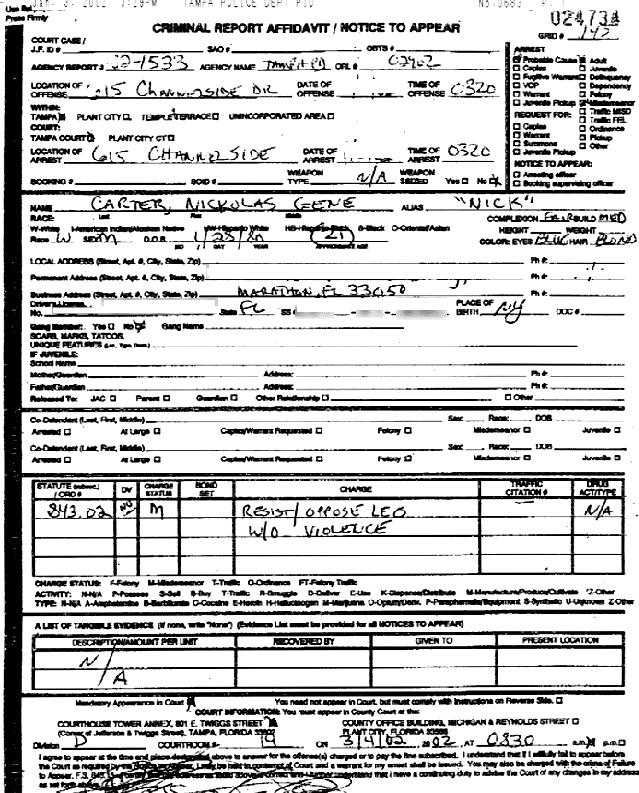 Use Ref
Press Firmly
2002 TAMPA POLICE DEPT PIO NO.0683 P. 1
CRIMINAL REPORT AFFIDAVIT / NOTICE TO APPEAR
COURT CASE /
J.F. ID # SAO # OBTS #
AGENCY REPORT # 02-1533 AGENCY NAME TAMPA PD ORI. #
GRID # 142
LOCATION OF OFFENSE 615 CHANNELSIDE DR DATE OF OFFENSE TIME OF OFFENSE 0320
WITHIN:
TAMPA PLANT CITY TEMPLE TERRACE UNINCORPORATED AREA
COURT:
TAMPA COURT PLANT CITY CT
LOCATION OF ARREST 615 CHANNELSIDE DATE OF ARREST TIME OF ARREST 0320
BOOKING # SOID # WEAPON TYPE N/A WEAPON SEIZED Yes No
ARREST
Probable Cause Adult
Capias Juvenile
Fugitive Warrant Delinquency
VOP Dependency
Warrant Felony
Juvenile Pickup Misdemeanor
Traffic MISD
REQUEST FOR: Traffic FEL
Capias Ordinance
Warrant Pickup
Summons Other
Juvenile Pickup
NOTICE TO APPEAR:
Arresting officer
Booking supervising officer
NAME CARTER, NICKOLAS GENE ALIAS "NICK"
Last First Middle
RACE:
W-White I-American Indian/Alaskan Native WH-Hispanic White HB-Hispanic Black B-Black O-Oriental/Asian
Race W SEX M D.O.B. 1/28/80 (21)
MO. DAY YEAR APPROXIMATE AGE
COMPLEXION FAIR BUILD MED
HEIGHT WEIGHT
COLOR: EYES BLUE HAIR BLOND
LOCAL ADDRESS (Street, Apt. #, City, State, Zip) Ph #:
Permanent Address (Street, Apt. #, City, State, Zip) Ph #:
Business Address (Street, Apt. #, City, State, Zip) MARATHON, FL 33050 Ph #:
Drivers License No. State FL SS # PLACE OF BIRTH NY DOC #
Gang Member: Yes No Gang Name
SCARS, MARKS, TATOOS,
UNIQUE FEATURES (Loc, Type, Desc.)
IF JUVENILE:
School Name
Mother/Guardian Address: Ph #:
Father/Guardian Address: Ph #:
Released To: JAC Parent Guardian Other Relationship Other
Co-Defendant (Last, First, Middle) Sex: Race: DOB
Arrested At Large Capias/Warrant Requested Felony Misdemeanor Juvenile
Co-Defendant (Last, First, Middle) Sex: Race: DOB
Arrested At Large Capias/Warrant Requested Felony Misdemeanor Juvenile
STATUTE / ORD # DV CHARGE STATUS BOND SET CHARGE TRAFFIC CITATION # DRUG ACT/TYPE
843.02 NO M RESIST/OPPOSE LEO N/A
W/O VIOLENCE
CHARGE STATUS: F-Felony M-Misdemeanor T-Traffic O-Ordinance FT-Felony Traffic
ACTIVITY: N-N/A P-Possess S-Sell B-Buy T-Traffic R-Smuggle D-Deliver E-Use K-Dispense/Distribute M-Manufacture/Produce/Cultivate Z-Other
TYPE: N-N/A A-Amphetamine B-Barbiturate C-Cocaine E-Heroin H-Hallucinogen M-Marijuana O-Opium/Deriv. P-Paraphernalia/Equipment S-Synthetic U-Unknown Z-Other
A LIST OF TANGIBLE EVIDENCE (If none, write "None") (Evidence List must be provided for all NOTICES TO APPEAR)
DESCRIPTION/AMOUNT PER UNIT RECOVERED BY GIVEN TO PRESENT LOCATION
N/A
Mandatory Appearance in Court You need not appear in Court, but must comply with Instructions on Reverse Side.
COURT INFORMATION: You must appear in County Court at the:
COURTHOUSE TOWER ANNEX, 801 E. TWIGGS STREET COUNTY OFFICE BUILDING, MICHIGAN & REYNOLDS STREET
(Corner of Jefferson & Twiggs Street), TAMPA, FLORIDA 33602 PLANT CITY, FLORIDA
Division D COURTROOM # 19 ON 3/4/02 2002 AT 0830 a.m. p.m.
I agree to appear at the time and place designated above to answer for the offense(s) charged or to pay the fine subscribed. I understand that if I willfully fail to appear before
the Court as required by the Notice to Appear, I may be held in contempt of Court and a warrant for my arrest shall be issued. You may also be charged with the crime of Failure
to Appear, F.S. understand that I have a continuing duty to advise the Court of any changes in my address
as set forth above.